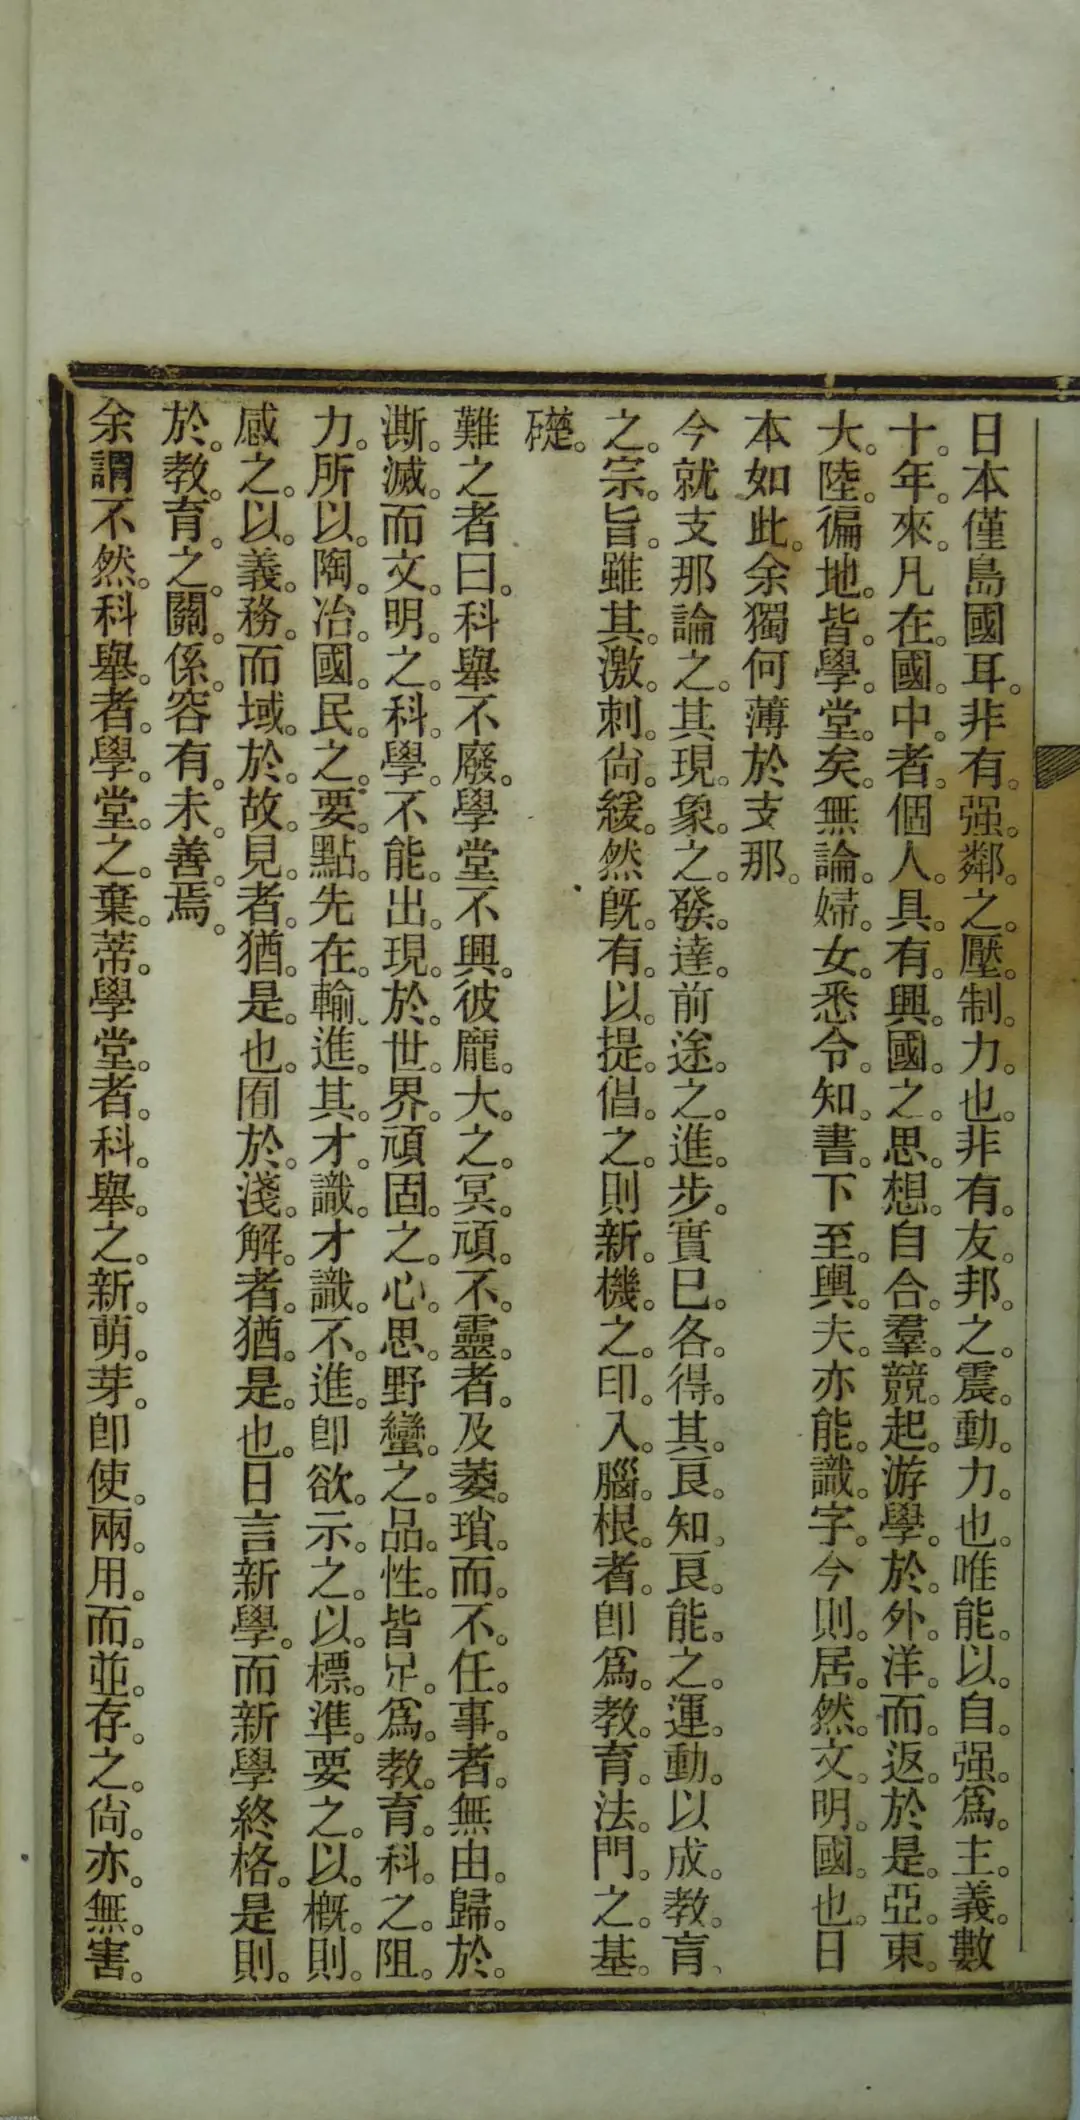 日本僅島國耳。非有。强。鄰。之。壓。制。力。也。非有。友。邦。之。震。動。力。也。唯能。以。自。强。爲。主。義。數
十。年。來。凡在。國。中。者。個人。具。有。興。國。之。思。想。自合。羣。競。起。游學。於。外。洋。而。返。於是。亞。東。
大。陸。徧地。皆。學。堂。矣。無論。婦女。悉令。知。書。下至。輿。夫。亦能。識。字。今則。居。然。文。明。國。也。日
本如此。余獨何薄於支那。
今就支那論之。其現。象。之。發。達。前途。之。進。步。實已。各。得。其。良。知、良。能。之。運。動。以成。教。育、
之。宗。旨。雖其。激。刺。尙。緩。然旣。有。以。提。倡。之。則新。機。之。印。入。腦。根。者。卽爲。教。育。法。門。之。基。
礎。
難之者曰。科舉不廢。學堂不興。彼龐。大。之。冥。頑。不。靈。者。及萎。瑣。而。不。任。事。者。無由。歸。於。
澌。滅。而文。明。之。科。學。不能。出。現。於。世。界。頑固。之。心。思。野蠻。之。品。性。皆足。爲。教。育。科。之。阻。
力。所以。陶。冶。國。民。之。要。點。先在。輸、進。其。才。識。才識。不。進。卽欲。示。之。以。標。準。要之。以。槪。則。
感之。以。義。務。而域。於。故。見。者。猶。是。也。囿於。淺。解。者。猶。是。也。日言新學。而新學終格。是則。
於。教。育。之。關。係。容有。未。善。焉。
余謂不然。科舉。者。學。堂。之。棄。蒂。學堂。者。科。舉。之。新。萌。芽。卽使。兩。用。而。並。存。之。尙。亦。無。害。